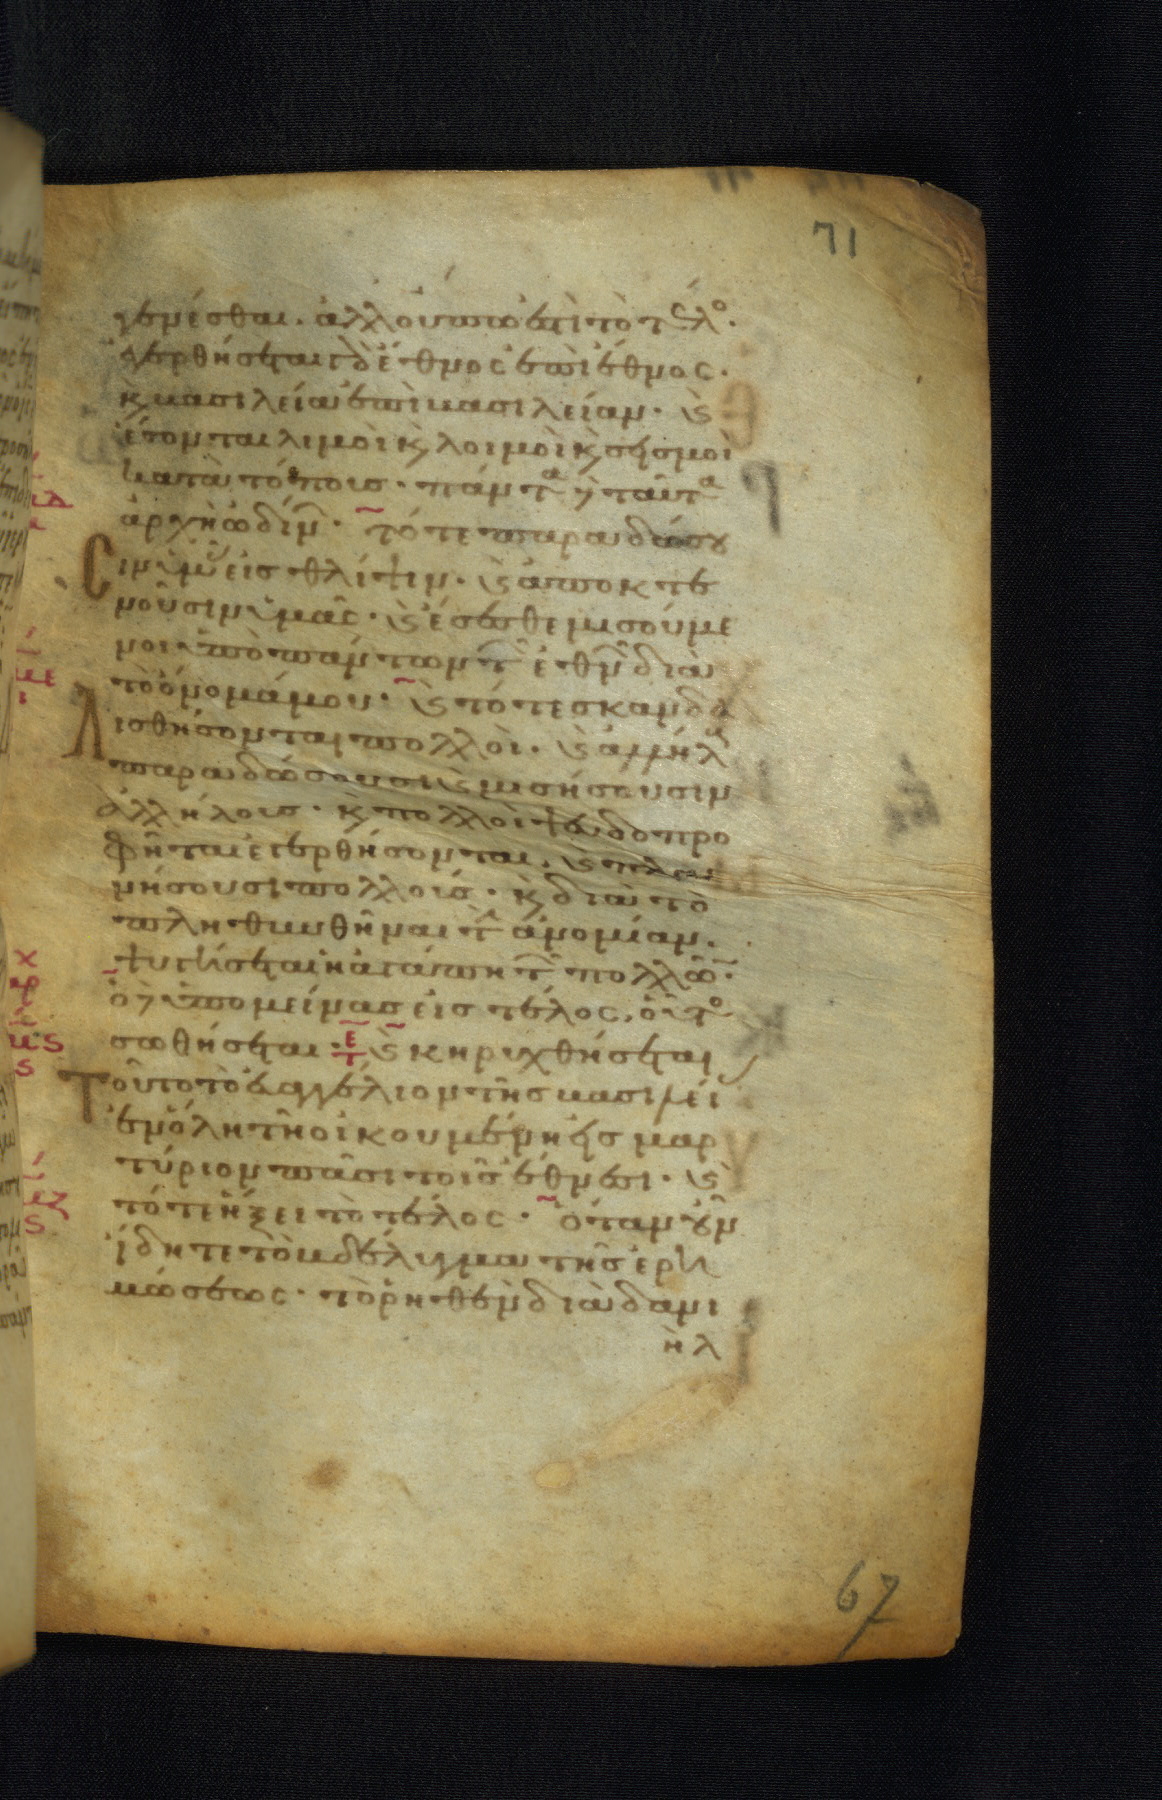 71
γενέσθαι. ἀλλ οὔπω ἐστὶ τὸ τέλο.
ἐγερθήσεται δὲ ἔθνος ἐπὶ ἔθνος.
κ βασιλεία ἐπὶ βασιλείαν. κ
ἔσονται λιμοὶ κ λοιμοὶ κ σεισμοὶ
κατὰ τόπους. πάντα δ ταῦτα
ἀρχὴ ὠδίν. τότε παραδώσου
σιν ὑμᾶς εἰς θλίψιν. κ ἀποκτε
νοῦσιν ὑμᾶς. κ ἔσεσθε μισούμε
νοι ὑπὸ πάντων τ ἐθνῶν διὰ
τὸ ὄνομά μου. κ τότε σκανδα
λισθήσονται πολλοὶ. κ ἀλλήλ
παραδώσουσι κ μισήσουσιν
ἀλλήλους. κ πολλοὶ ψευδοπρο
φῆται ἐγερθήσονται. κ πλα
νήσουσι πολλούς. κ διὰ τὸ
πληθυνθῆναι τ ἀνομίαν.
ψυγήσεται ἡ ἀγάπη τ πολλῶ.
ὁ δ ὑπομείνας εἰς τέλος, οὗτο
σωθήσεται. κ κηρυχθήσεται
τοῦτο τὸ εὐαγγέλιον τῆς βασιλεί
ἐν ὅλη τῆ οἰκουμένη εἰς μαρ
τύριον πᾶσι τοῖς ἔθνεσι. κ
τότε ἥξει τὸ τέλος. ὅταν οὖν
ἴδητε τὸ βδέλυγμα τῆς ἐρη
μώσεως. τὸ ῥηθὲν διὰ δανι
ὴλ
67